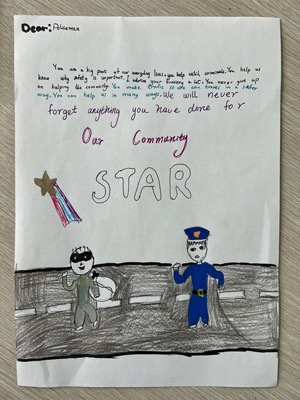 Dear: Policeman
You are a big part of our everyday lives. you help catch criminals. You help us
know why safety is important. I admire your bravery a lot. You never give up
on helping the comunity. You make trafic so we can travel in a safer
way. You can help us in many ways. We will never
forget anything you have done for
Our Community
STAR